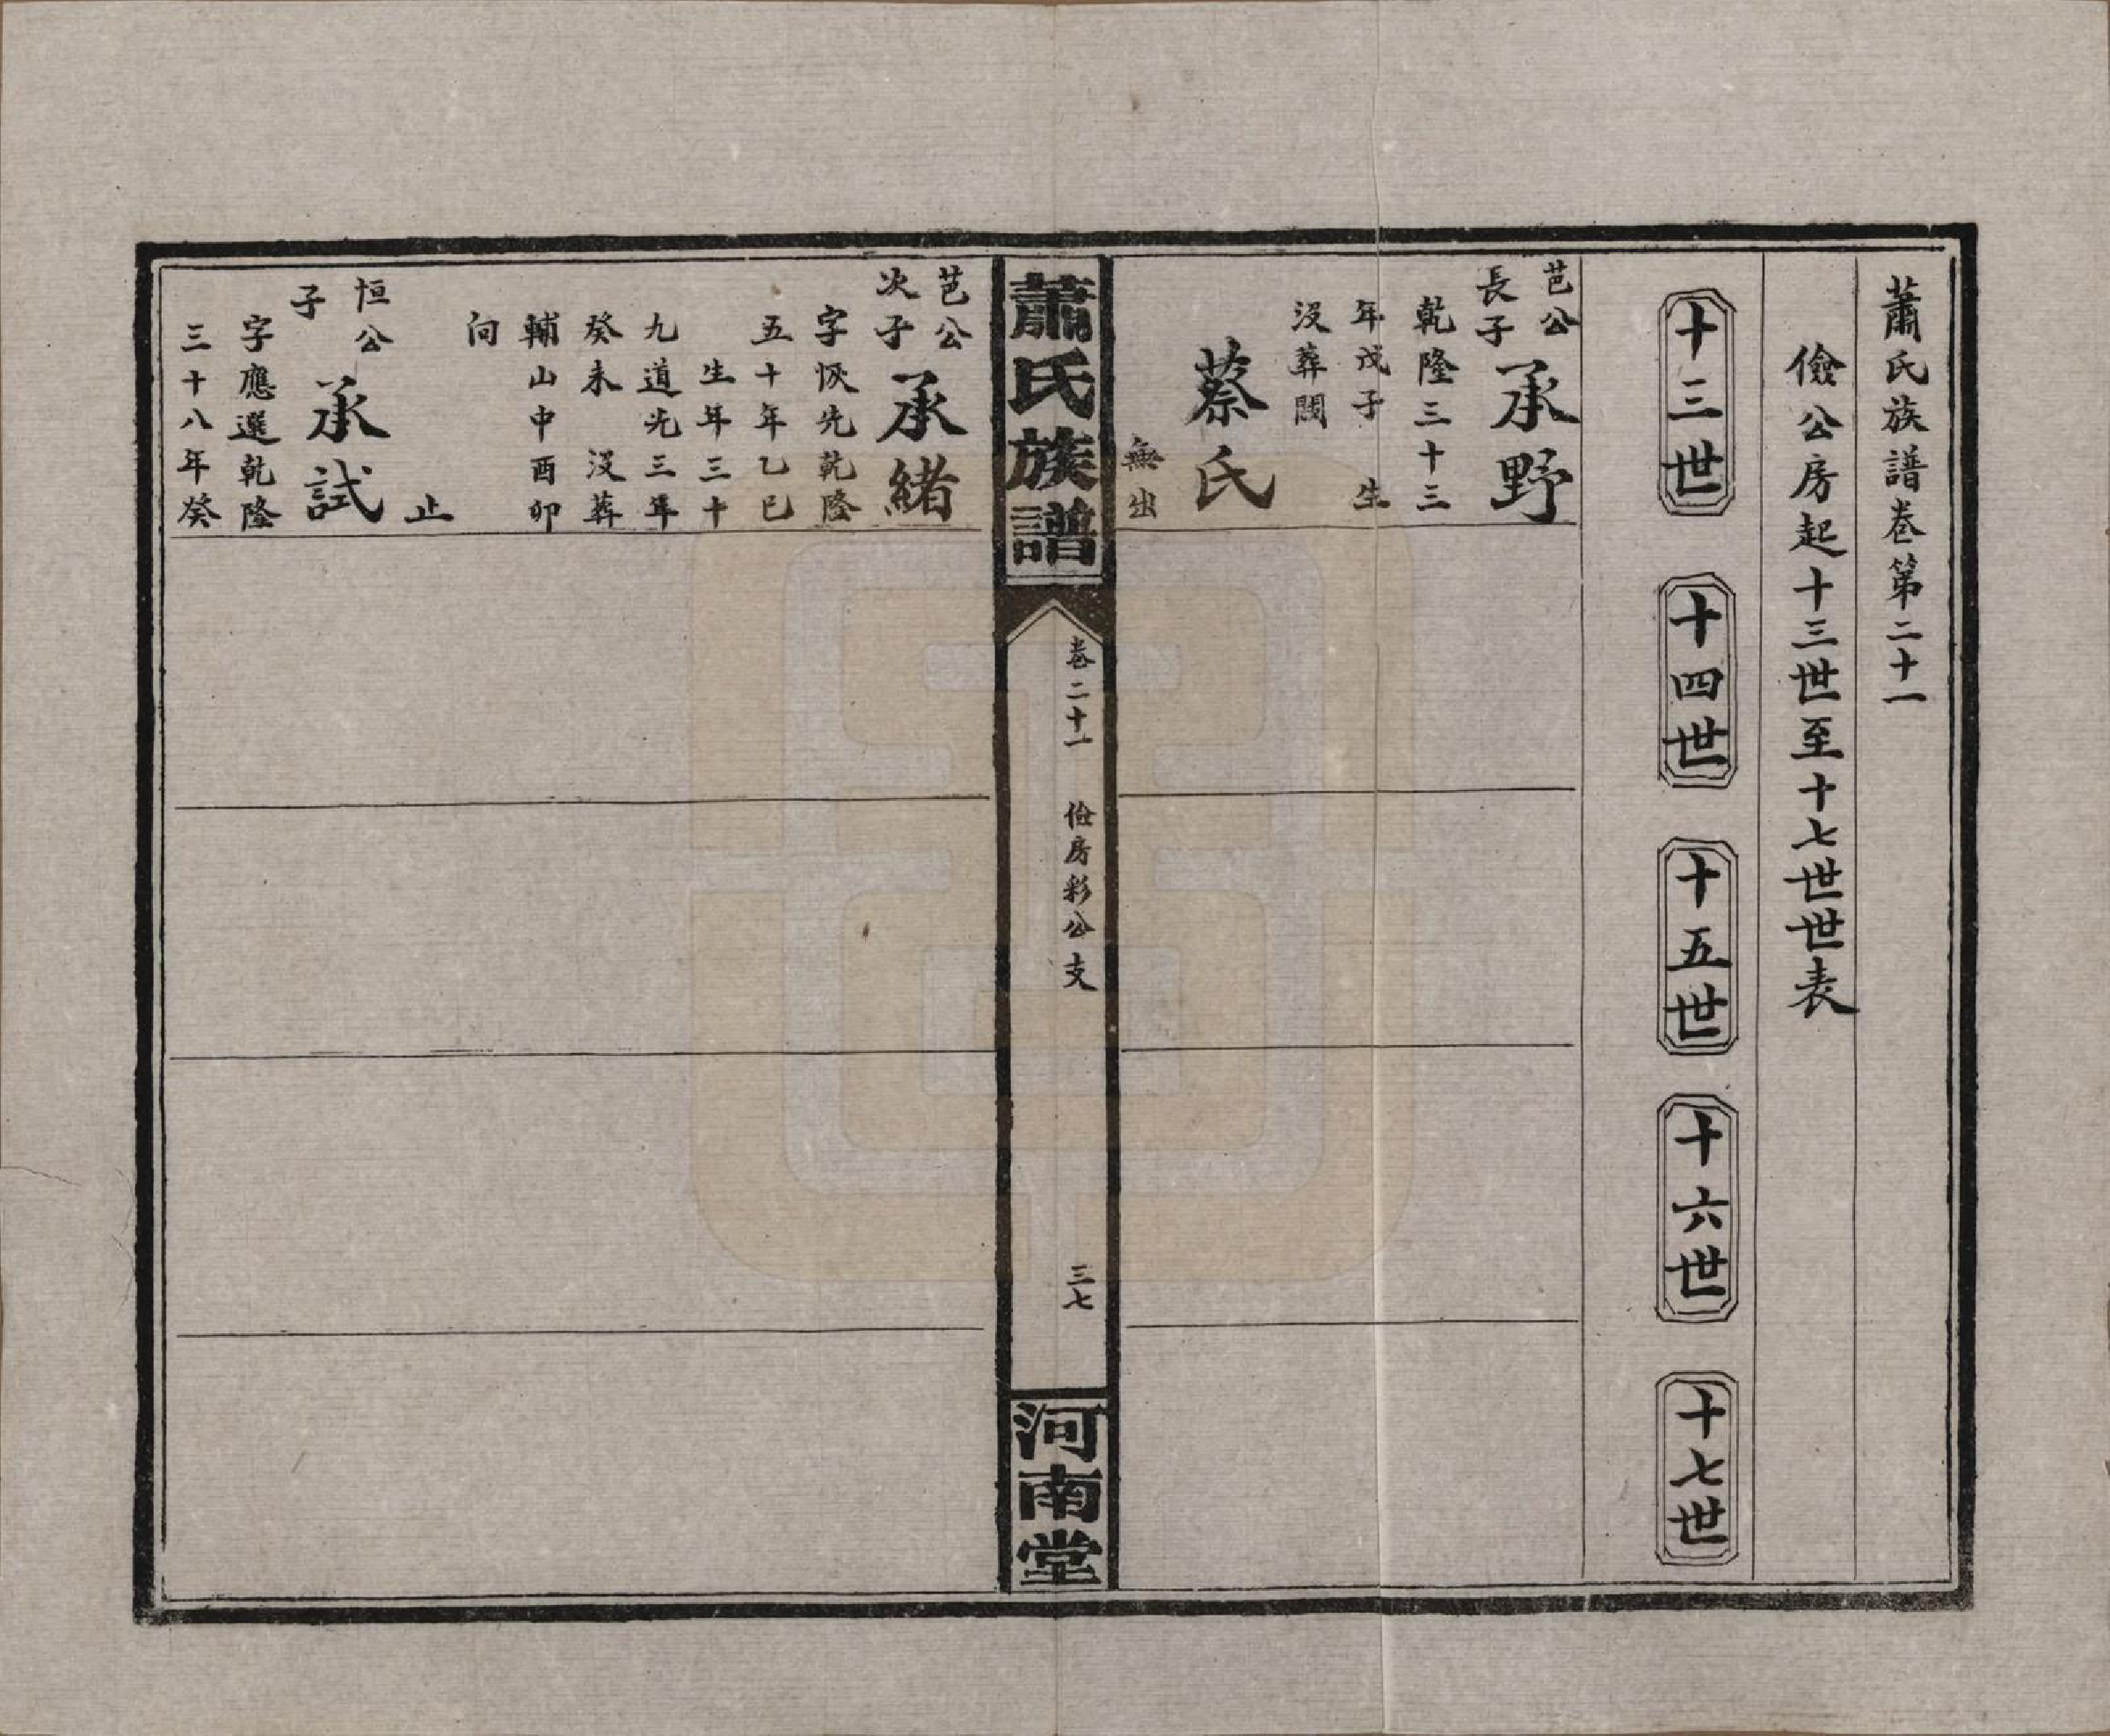 蕭氏族譜卷第二十一
儉公房起十三世至十七世世表
十三世
十四世
十五世
十六世
十七世
芑公
長子
承野
乾隆三十三
年戊子 生
沒葬闕
蔡氏
無出
蕭氏族譜
卷二十一
儉房彩公支
三七
河南堂
芑公
次子
承緒
字恢先乾隆
五十年乙巳
生年三十
九道光三年
癸未 沒葬
輔山中酉卯
向
止
恒公
子
承試
字應選乾隆
三十八年癸